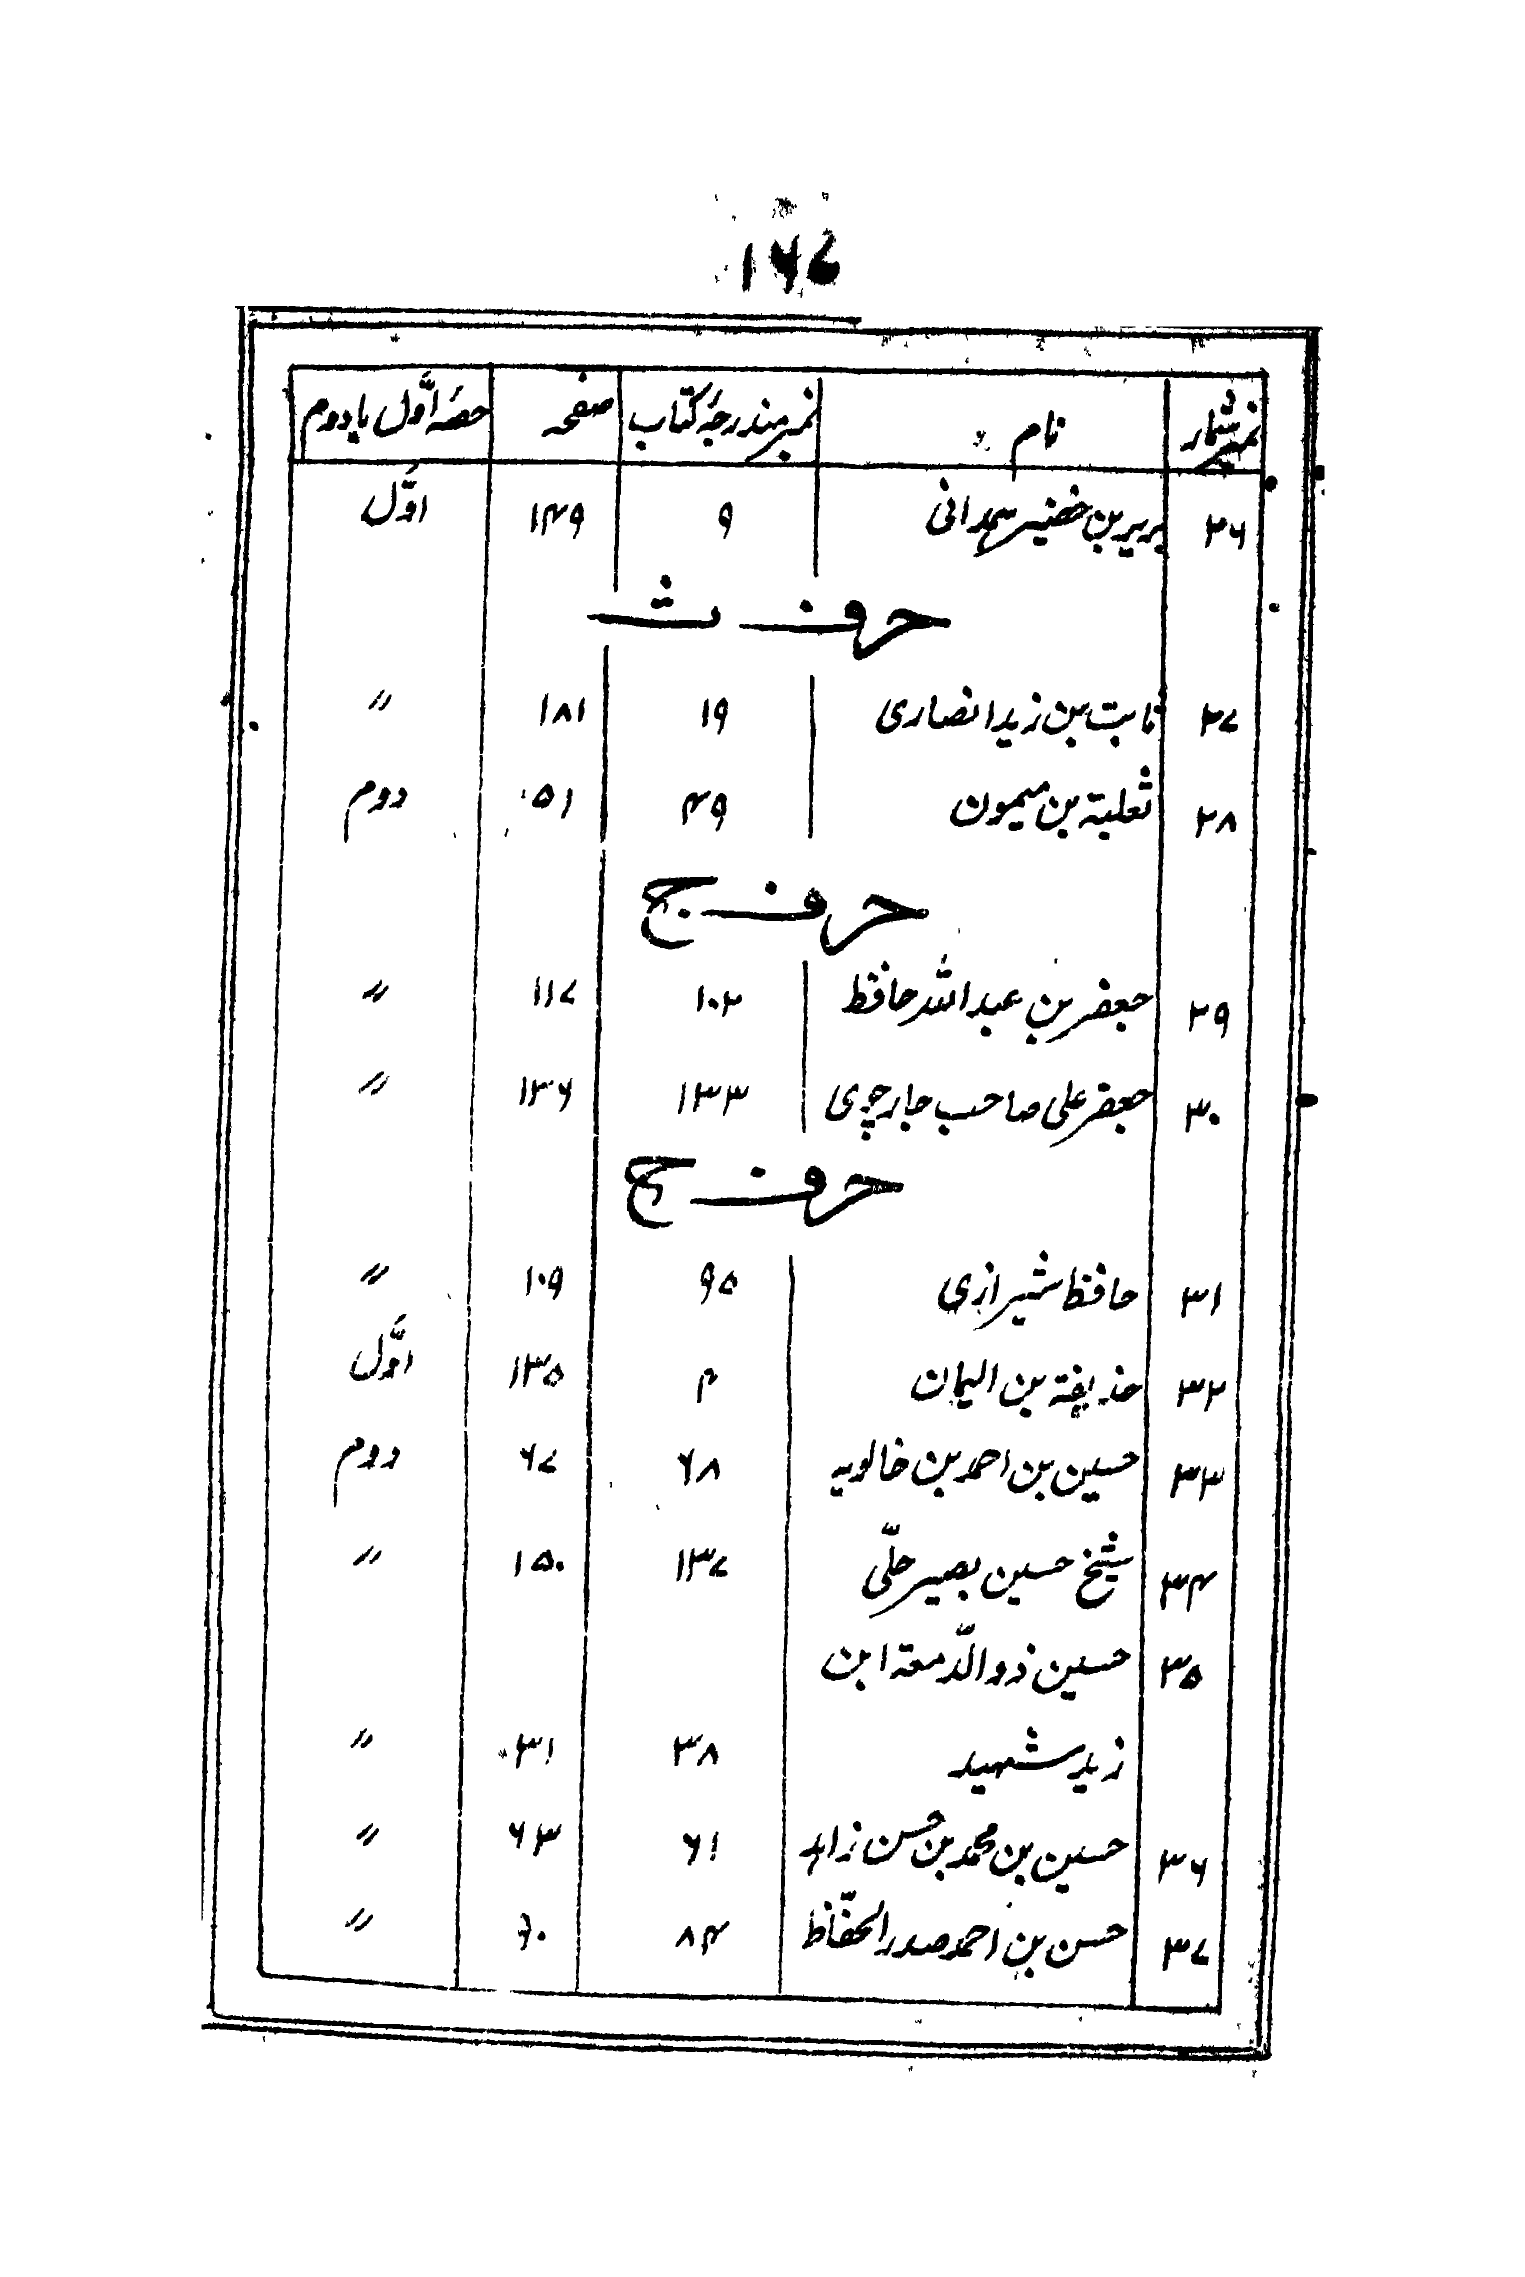 ۱۶۷
نمبر شمار نام نمبر مندرجۂ کتاب صفحہ حصہ اوّل یا دوم
۲۶ بریر بن خضیر ہمدانی ۹ ۱۴۹ اوّل
حرف ث
۲۷ ثابت بن زید انصاری ۱۹ ۱۸۱ 〃
۲۸ ثعلبۃ بن میمون ۴۹ ۵۱ دوم
حرف ج
۲۹ جعفر بن عبداللہ حافظ ۱۰۲ ۱۱۷ 〃
۳۰ جعفر علی صاحب جارچوی ۱۳۳ ۱۳۶ 〃
حرف ح
۳۱ حافظ شیرازی ۹۵ ۱۰۹ 〃
۳۲ حذیفۃ بن الیمان ۴ ۱۳۵ اوّل
۳۳ حسین بن احمد بن خالویہ ۶۸ ۶۷ دوم
۳۴ شیخ حسین بصیر حلّی ۱۳۷ ۱۵۰ 〃
۳۵ حسین ذوالدّمعۃ ابن
زید شہید ۳۸ ۳۱ 〃
۳۶ حسین بن محمد بن حسن زاہد ۶۱ ۶۳ 〃
۳۷ حسن بن احمد صدر الحفّاظ ۸۴ 〃